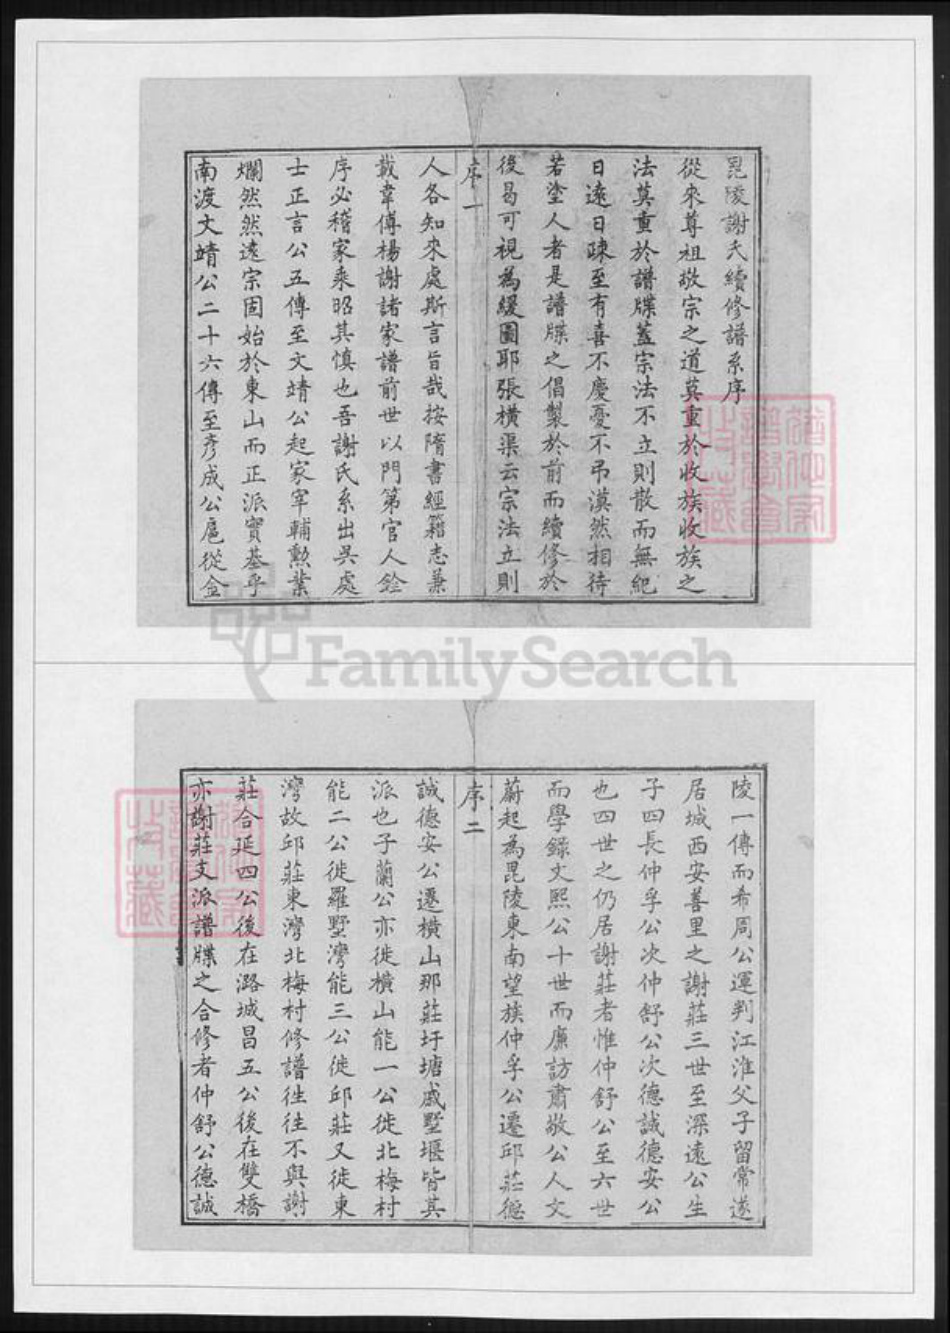 毘陵謝氏續修譜系序
從來尊祖敬宗之道莫重於收族收族之
法莫重於譜牒蓋宗法不立則散而無紀
日遠日疎至有喜不慶憂不弔漠然相待
若塗人者是譜牒之倡製於前而續修於
後曷可視為緩圖耶張橫渠云宗法立則
序一
人各知來處斯言旨哉按隋書經籍志兼
載韋傅楊謝諸家譜前世以門第官人銓
序必稽家乘昭其慎也吾謝氏系出吳處
士正言公五傳至文靖公起家宰輔勲業
爛然然遠宗固始於東山而正派實基乎
南渡文靖公二十六傳至彥成公扈從金
FamilySearch
陵一傳而希周公運判江淮父子留常遂
居城西安善里之謝莊三世至深遠公生
子四長仲孚公次仲舒公次德誠德安公
也四世之仍居謝莊者惟仲舒公至六世
而學錄文熙公十世而廉訪肅敬公人文
蔚起為毘陵東南望族仲孚公遷邱莊德
序二
誠德安公遷橫山那莊圩塘戚墅堰皆其
派也子蘭公亦徙橫山能一公徙北梅村
能二公徙羅墅灣能三公徙邱莊又徙東
灣故邱莊東灣北梅村修譜徃徃不與謝
莊合延四公後在潞城昌五公後在雙橋
亦謝莊支派譜牒之合修者仲舒公德誠